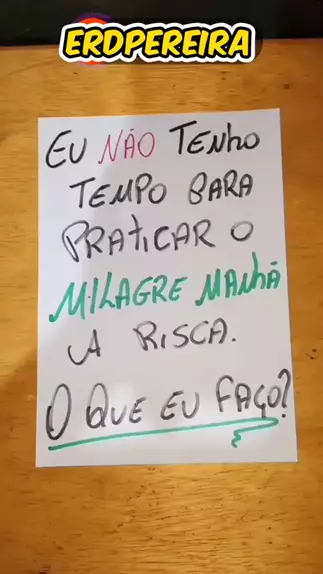 ERDPEREIRA
EU NÃO TENHO
TEMPO PARA
PRATICAR O
MILAGRE MANHÃ
A RISCA.
O QUE EU FAÇO?